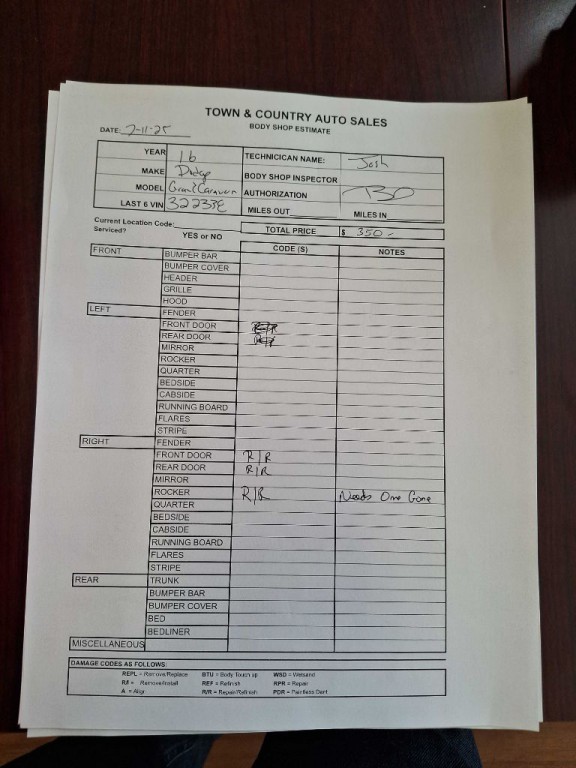 TOWN & COUNTRY AUTO SALES
BODY SHOP ESTIMATE
DATE: 2-11-25
YEAR 16 TECHNICICAN NAME: Josh
MAKE Dodge BODY SHOP INSPECTOR
MODEL Grand Caravan AUTHORIZATION
LAST 6 VIN MILES OUT MILES IN
Current Location Code:
Serviced? YES or NO TOTAL PRICE $ 350-
CODE (S) NOTES
FRONT BUMPER BAR
BUMPER COVER
HEADER
GRILLE
HOOD
LEFT FENDER
FRONT DOOR R/R
REAR DOOR
MIRROR
ROCKER
QUARTER
BEDSIDE
CABSIDE
RUNNING BOARD
FLARES
STRIPE
RIGHT FENDER
FRONT DOOR R/R
REAR DOOR R/R
MIRROR
ROCKER R/R Needs One Gone
QUARTER
BEDSIDE
CABSIDE
RUNNING BOARD
FLARES
STRIPE
REAR TRUNK
BUMPER BAR
BUMPER COVER
BED
BEDLINER
MISCELLANEOUS
DAMAGE CODES AS FOLLOWS:
REPL = Remove/Replace BTU = Body Touch up WSD = Wetsand
R/I = Remove/Install REF = Refinish RPR = Repair
A = Align R/R = Repair/Refinish PDR = Paintless Dent